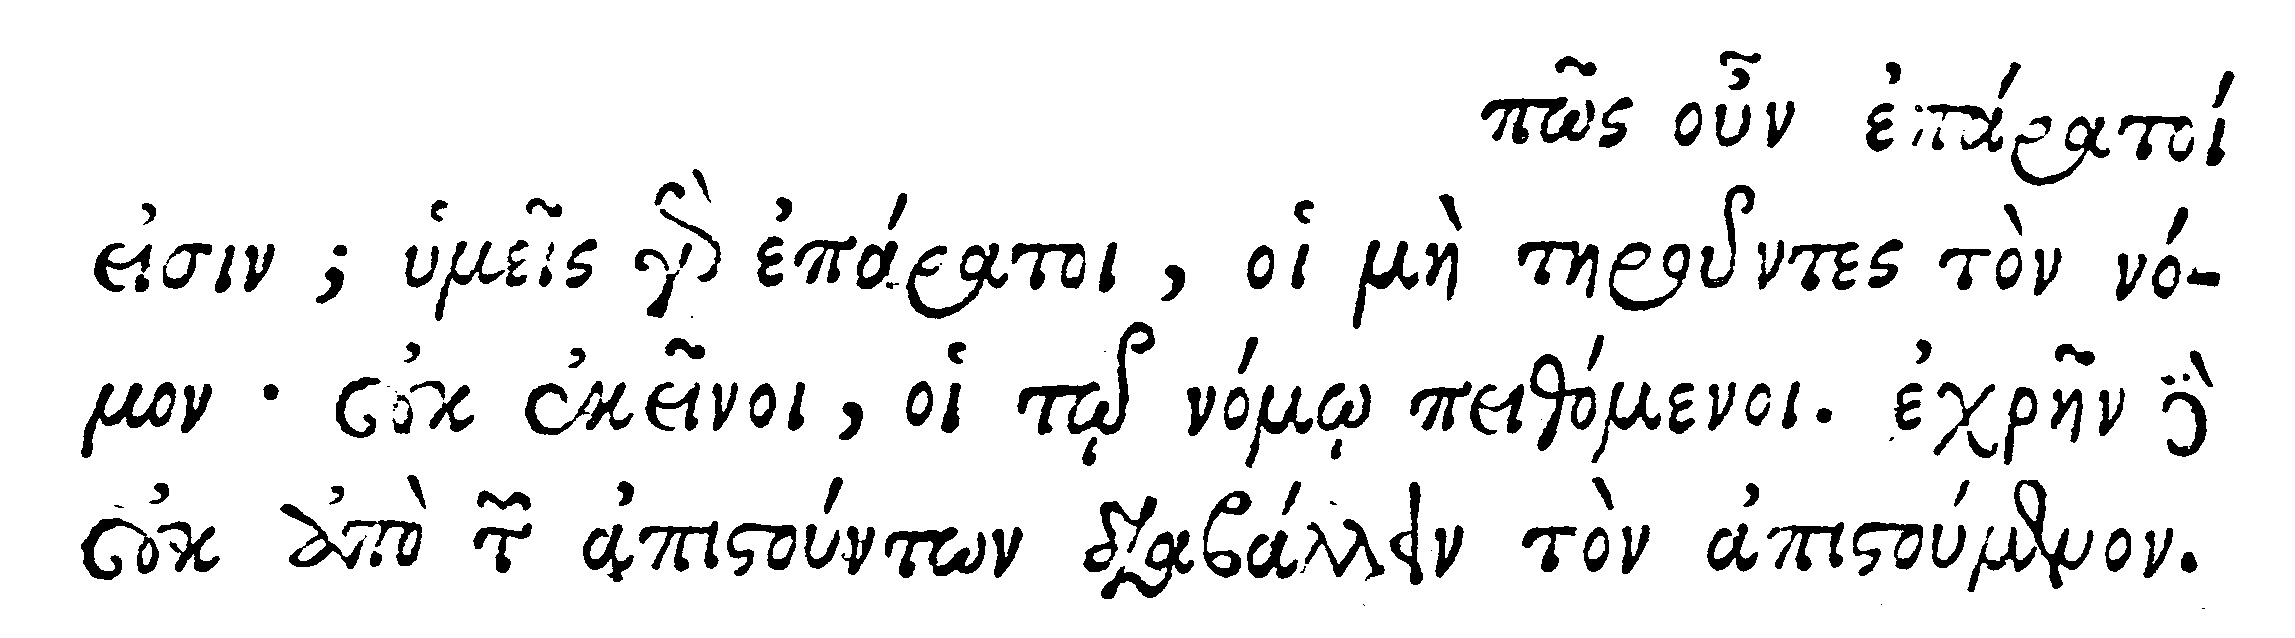 πῶς οὖν ἐπάρατοί
εἰσιν; ὑμεῖς γὰρ ἐπάρατοι, οἱ μὴ τηροῦντες τὸν νό-
μον· οὐκ ἐκεῖνοι, οἱ τῷ νόμῳ πειθόμενοι. ἐχρῆν δὲ
οὐκ ἀπὸ τῶν ἀπιστούντων διαβάλλειν τὸν ἀπιστούμενον.